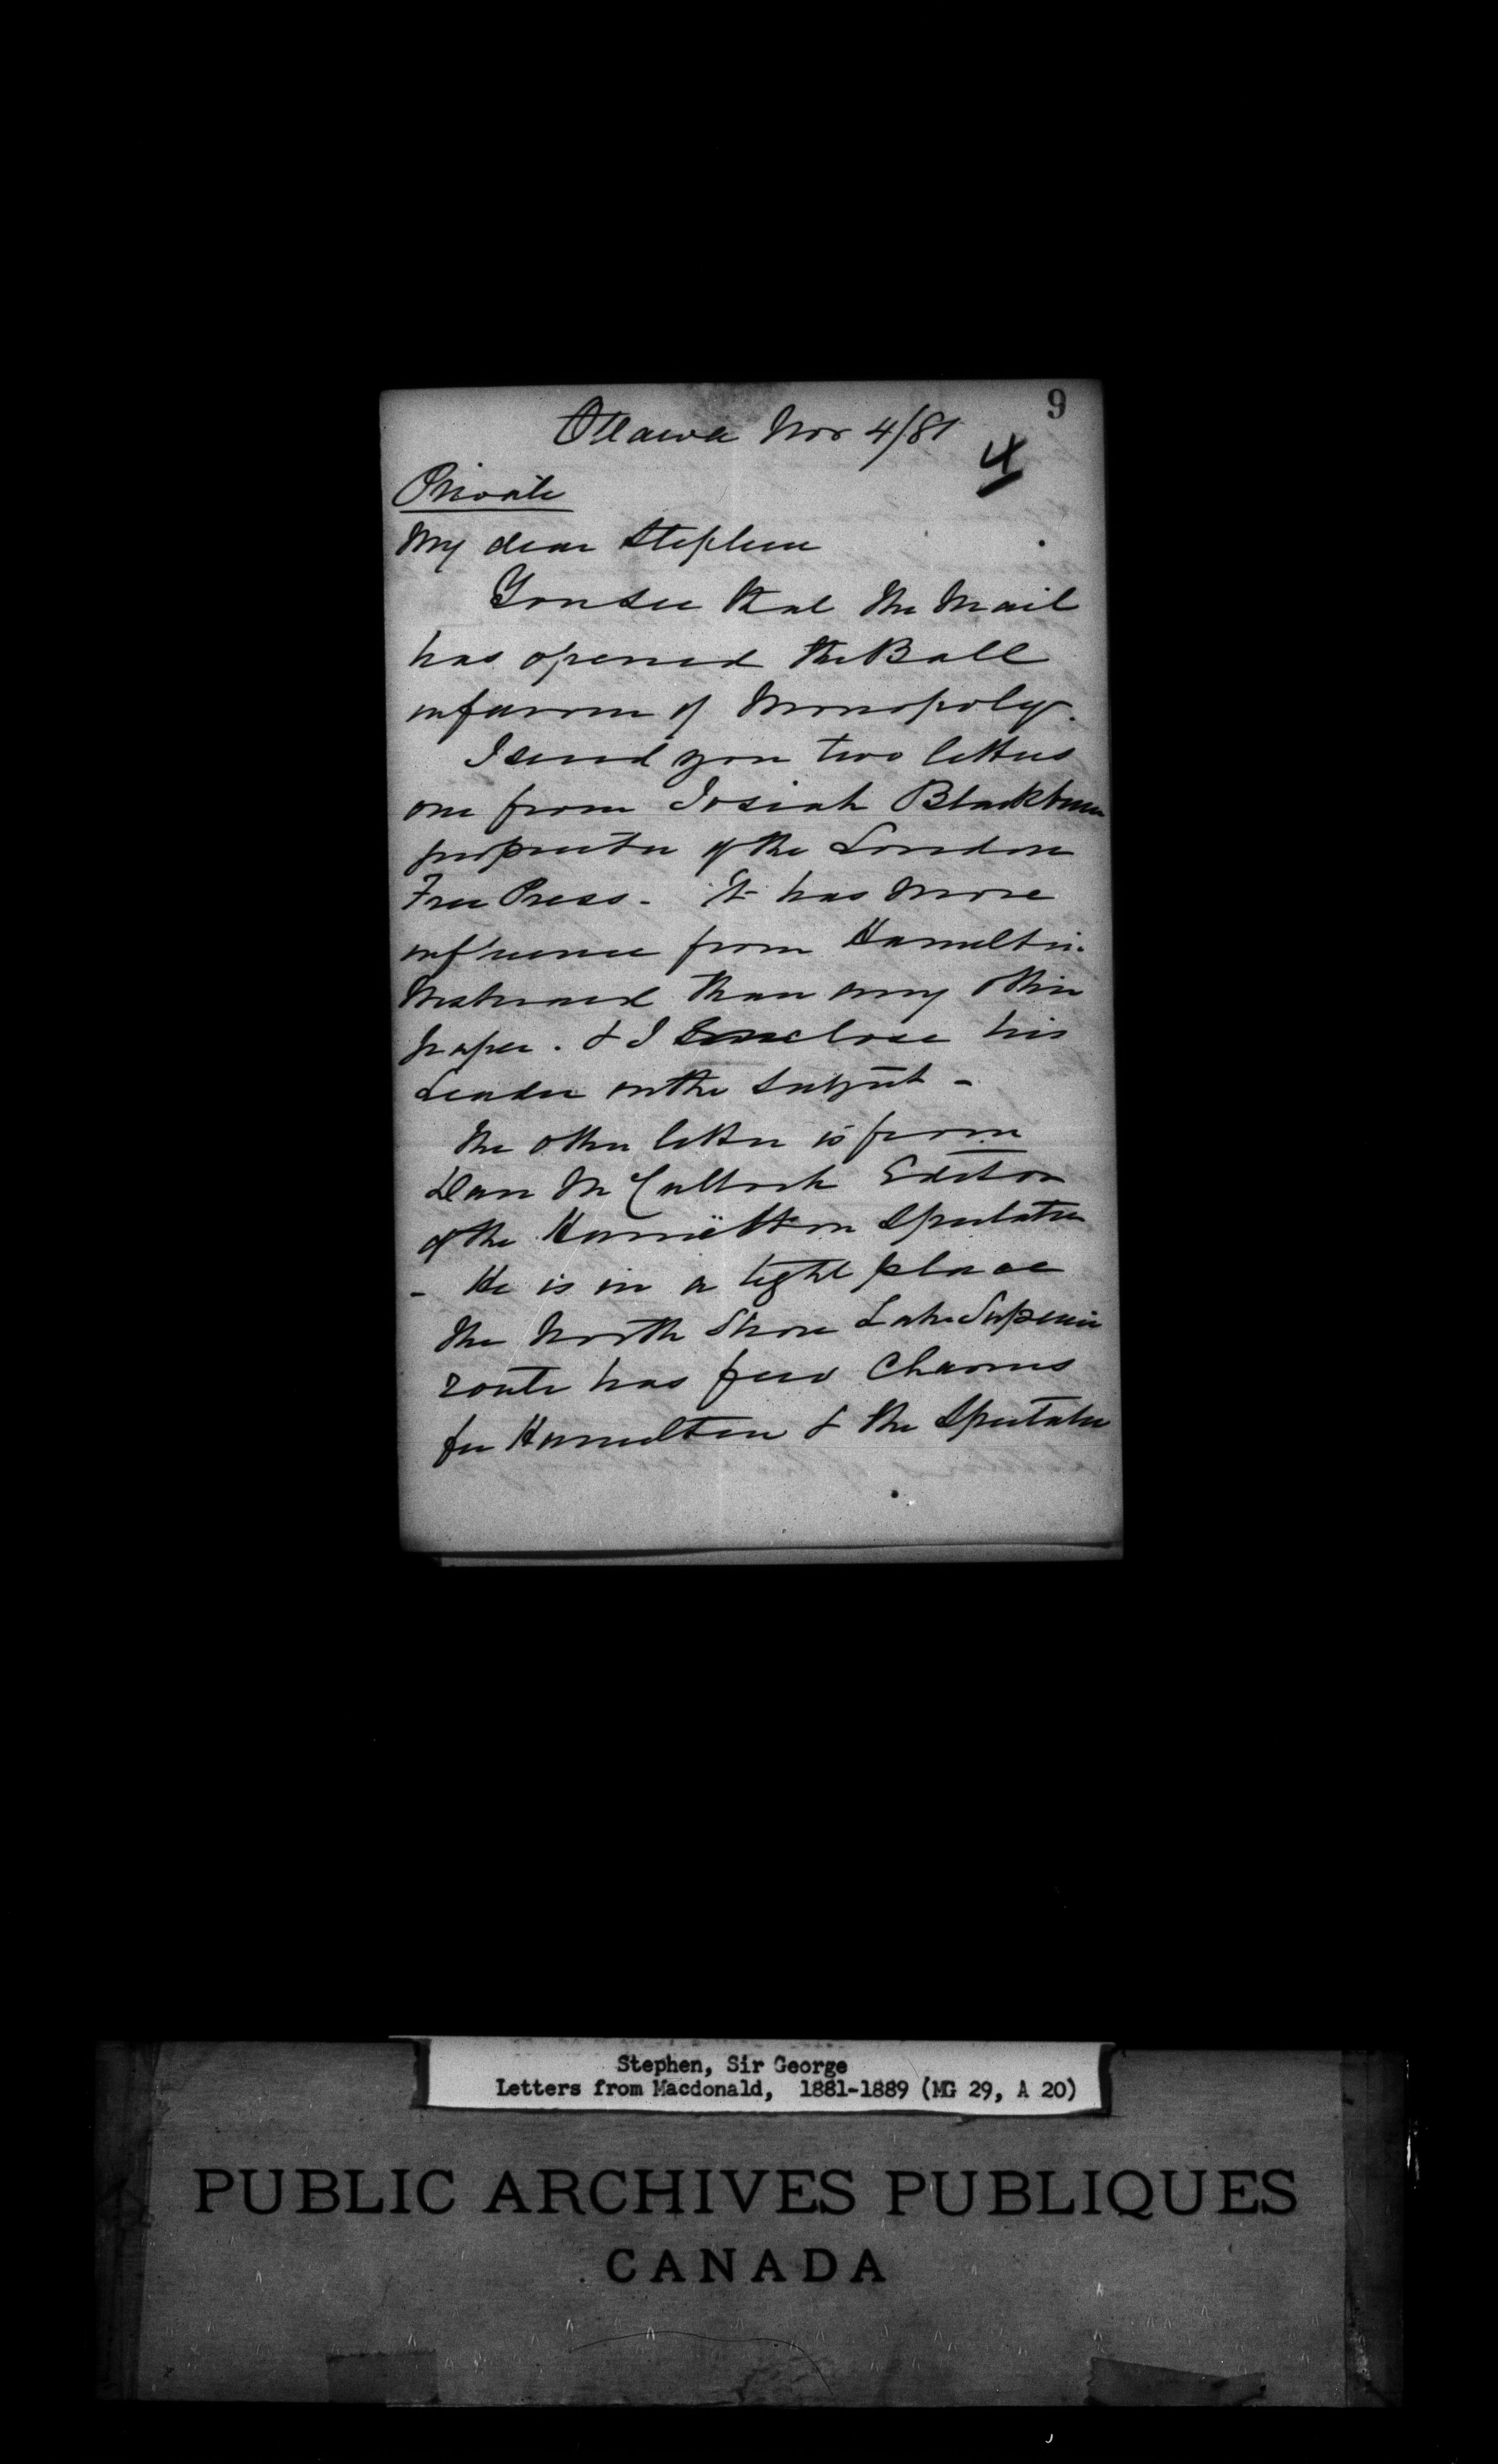 9
Ottawa Nov 4/81
4
Private
My dear Stephen
You see that the Mail
has opened the Ball
in favour of Monopoly.
I send you two letters
one from Josiah Blackburn
proprietor of the London
Free Press - It has more
influence from Hamilton
Westward than any other
paper. & I enclose his
Leader on the subject -
The other letter is from
Dan McCulloch Editor
of the Hamilton Spectator
- He is in a tight place
The North Shore Lake Superior
route has few Charms
for Hamilton & the Spectator
Stephen, Sir George
Letters from Macdonald, 1881-1889 (MG 29, A 20)
PUBLIC ARCHIVES PUBLIQUES
CANADA